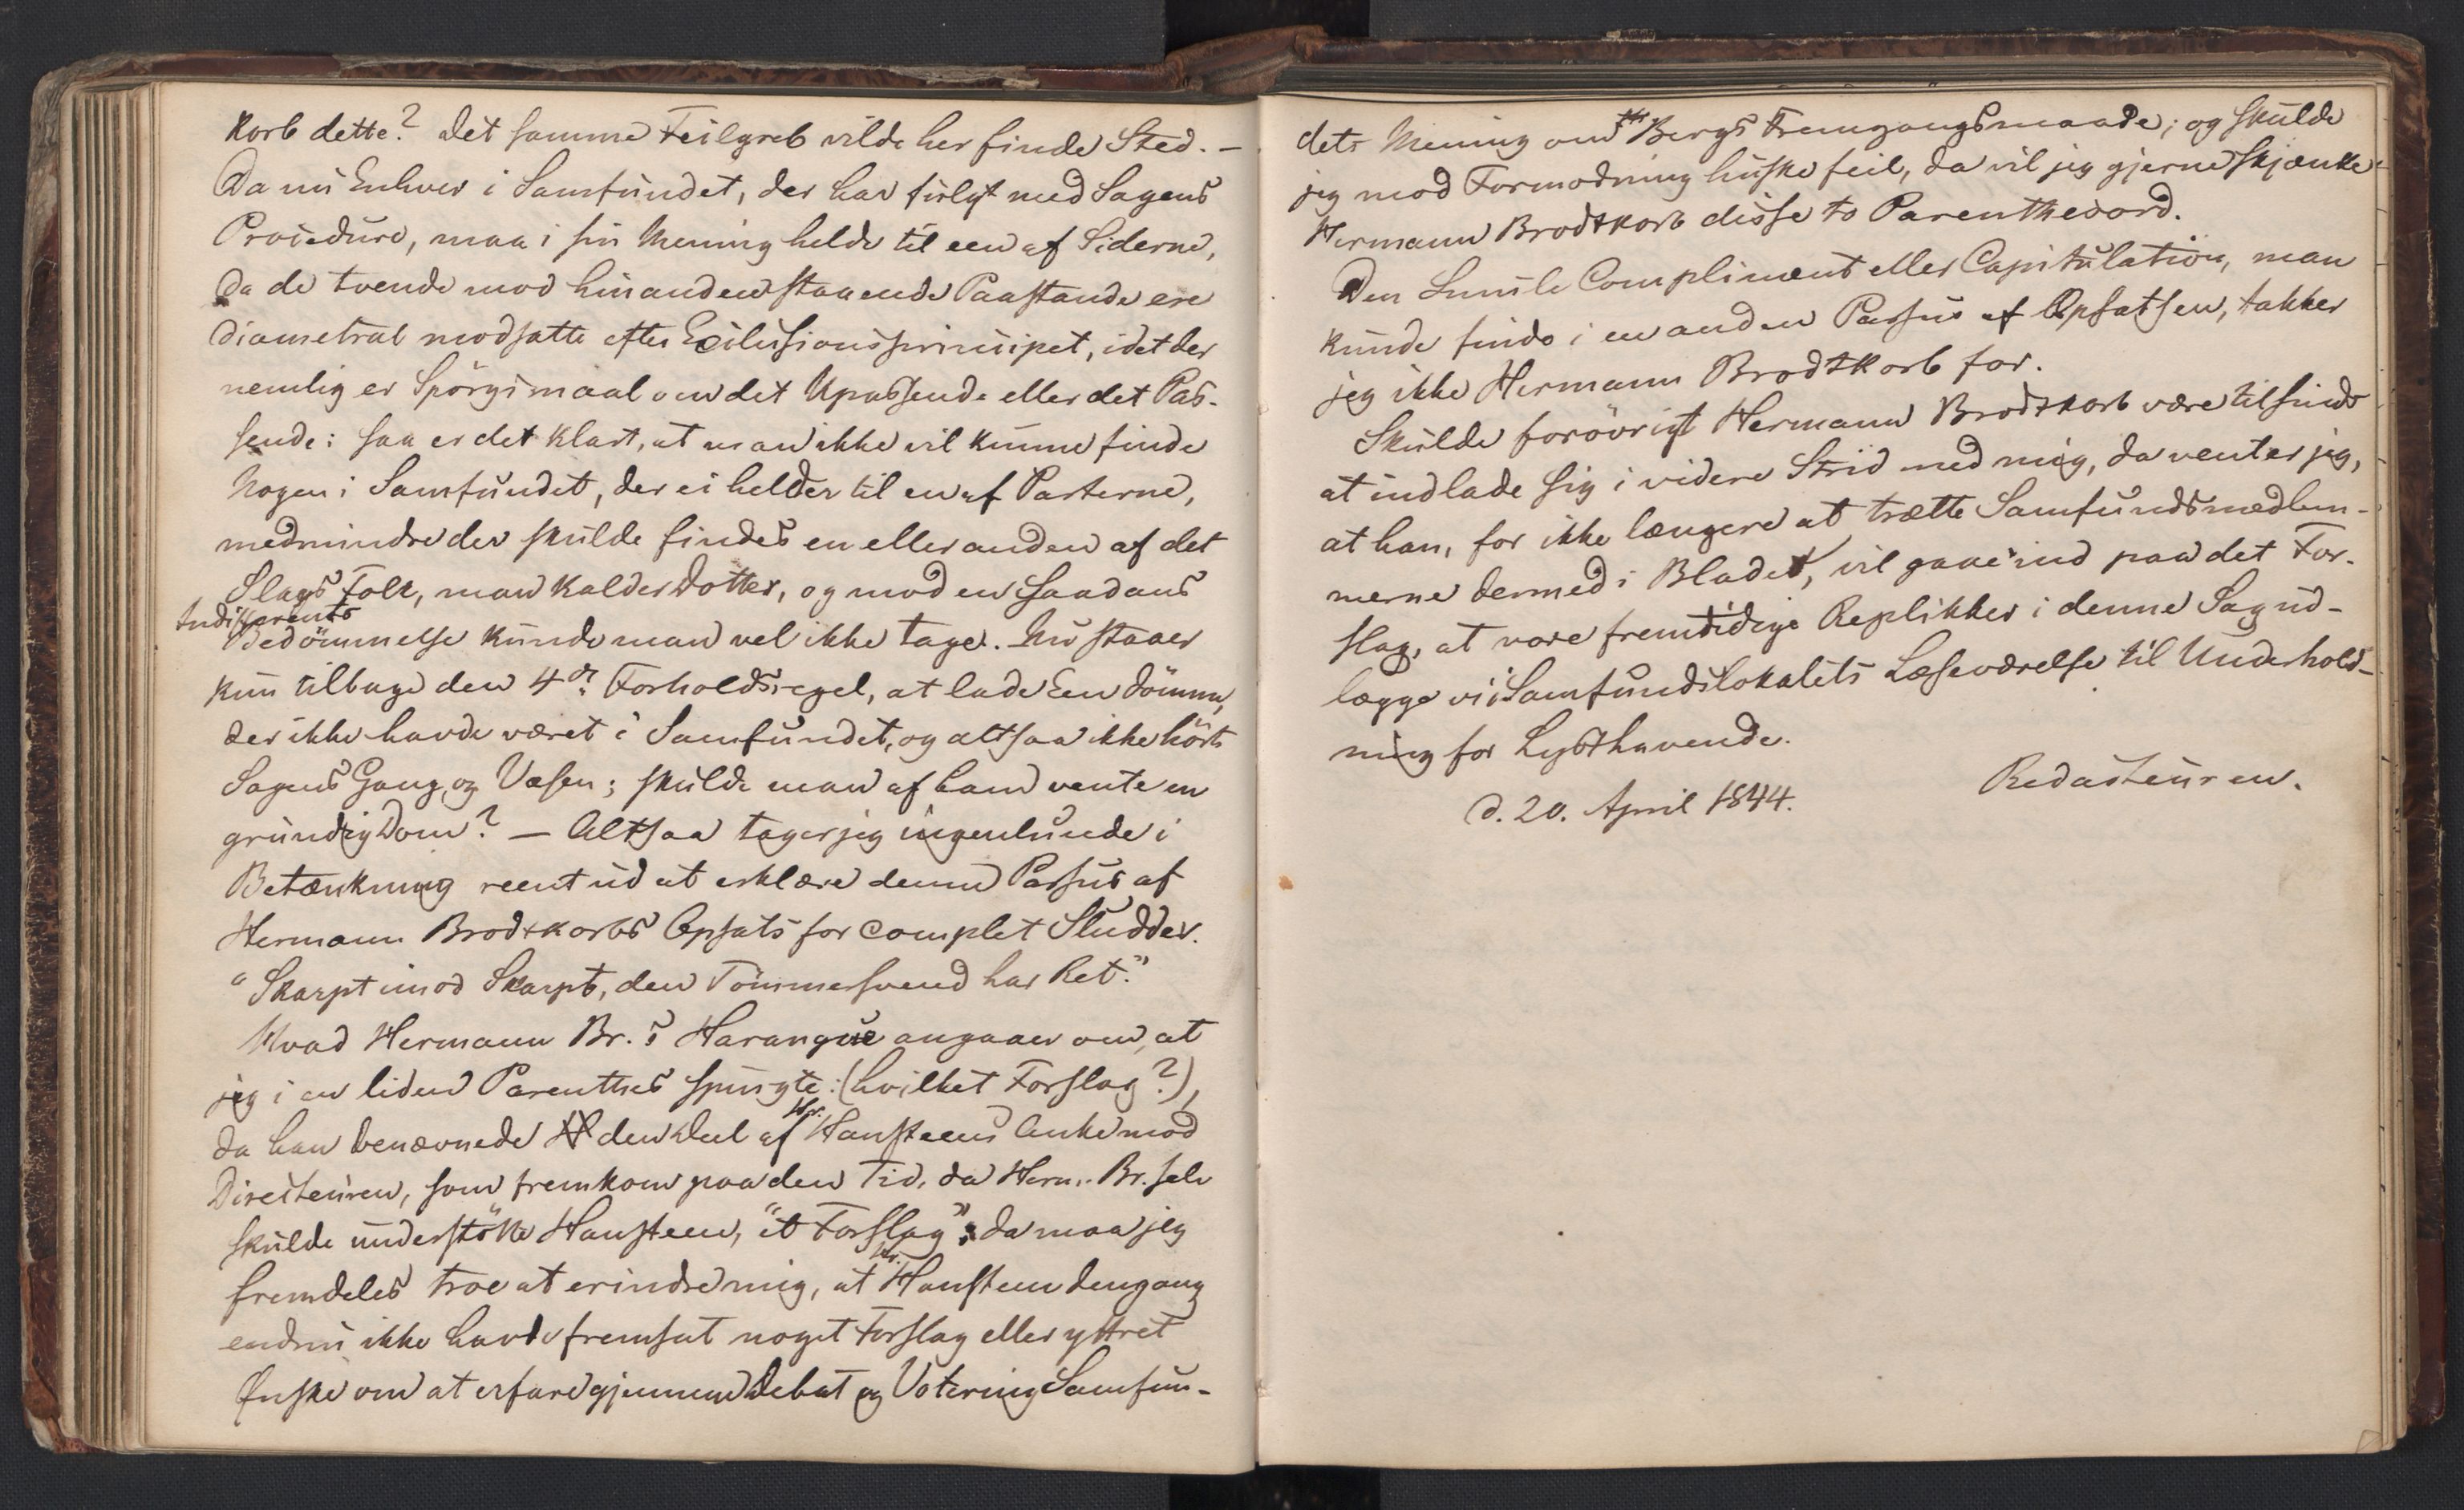 korb dette? Det samme Feilgreb vilde her finde Sted. –
Da nu Enhver i Samfundet, der har fulgt med Sagens
Procedure, maa i sin Mening helde til een af Siderne,
da de tvende mod hinanden staaende Paastande ere
diametral modsatte efter Exclusionsprincipet, idet der
nemlig er Spörgsmaal om det Upassende eller det Pas-
sende; saa er det klart, at man ikke vil kunne finde
Nogen i Samfundet, der ei helder til en af Parterne,
medmindre der skulde findes en eller anden af det
Slags Folk, man kalder Dotter, og mod en saadans
Indifferents
Bedömmelse kunde man vel ikke tage. Nu staaer
kun tilbage den 4de Forholdsregel, at lade Een dömme,
der ikke havde været i Samfundet, og altsaa ikke hört
Sagens Gang og Væsen; skulde man af ham vente en
grundig Dom? – Altsaa tager jeg ingenlunde i
Betænkning reent ud at erklære denne Passus af
Hermann Brodtkorbs Opsats for complet Sludder.
"Skarpt imod Skarpt, den Tömmersvend har Ret."
Hvad Hermann Br.s Harangue angaaer om, at
jeg i en liden Parenthes spurgte: (hvilket Forslag?),
da han benævnede den Deel af Hr. Hansteens Anke mod
Directeuren, som fremkom paa den Tid, da Herm. Br. selv
skulde understötte Hansteen, "et Forslag"; da maa jeg
fremdeles troe at erindre mig, at Hr. Hansteen dengang
endnu ikke havde fremsat noget Forslag eller yttret
Ønske om at erfare gjennem Debat og Votering Samfun-
dets Mening om Hr. Bergs Fremgangsmaade; og skulde
jeg mod Formodning huske feil, da vil jeg gjerne skjænke
Hermann Brodtkorb disse to Parentheseord.
Den Smule Compliment eller Capitulation, man
kunde finde i en anden Passus af Opsatsen, takker
jeg ikke Hermann Brodtkorb for.
Skulde foröorigt Hermann Brodtkorb være tilsinds
at indlade sig i videre Strid med mig, da venter jeg,
at han, for ikke længere at trætte Samfundsmedlem-
merne dermed i Bladet, vil gaae ind paa det For-
slag, at vore fremtidige Replikker i denne Sag ud-
lægge vi i Samfundslokalets Læseværelse til Underhold-
ning for Lysthavende.
d. 20. April 1844.
Redacteuren.